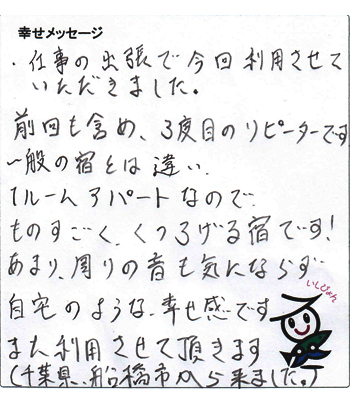 幸せメッセージ
・仕事の出張で今回利用させて
いただきました。
前回も含め、3度目のリピーターです
一般の宿とは違い、
1ルームアパートなので、
ものすごく、くつろげる宿です!
あまり、周りの音も気にならず…
自宅のような、幸せ感です
いしじょん
また利用させて頂きます
(千葉県、船橋市から来ました。)